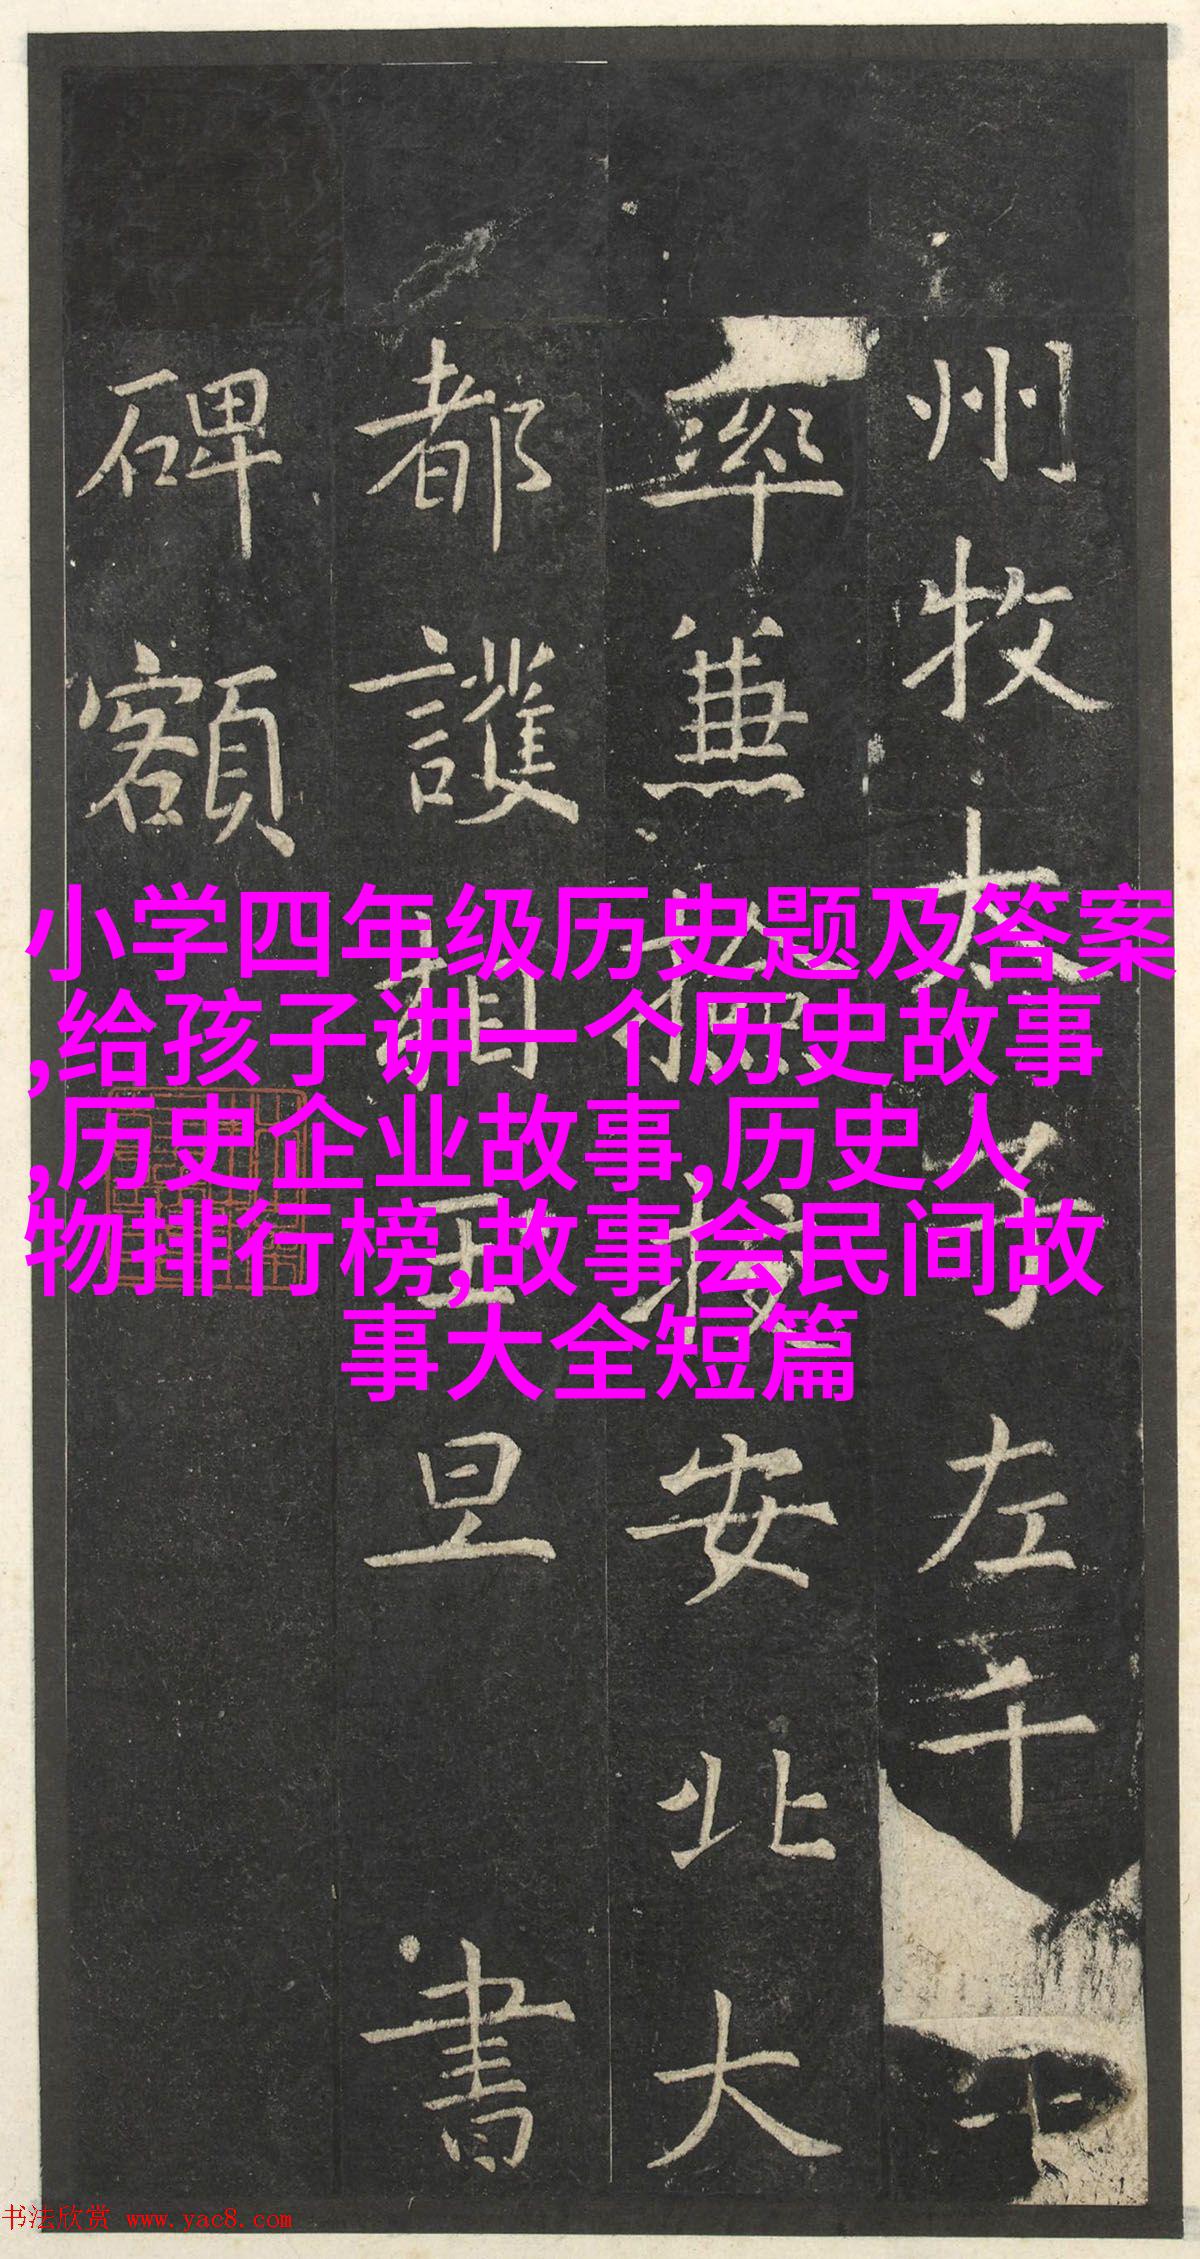 州牧太子左千
率兼檢校安北大
都護相王旦書
碑額
小学四年级历史题及答案
,给孩子讲一个历史故事
,历史企业故事,历史人
物排行榜,故事会民间故
事大全短篇
书法欣赏 www.yac8.com